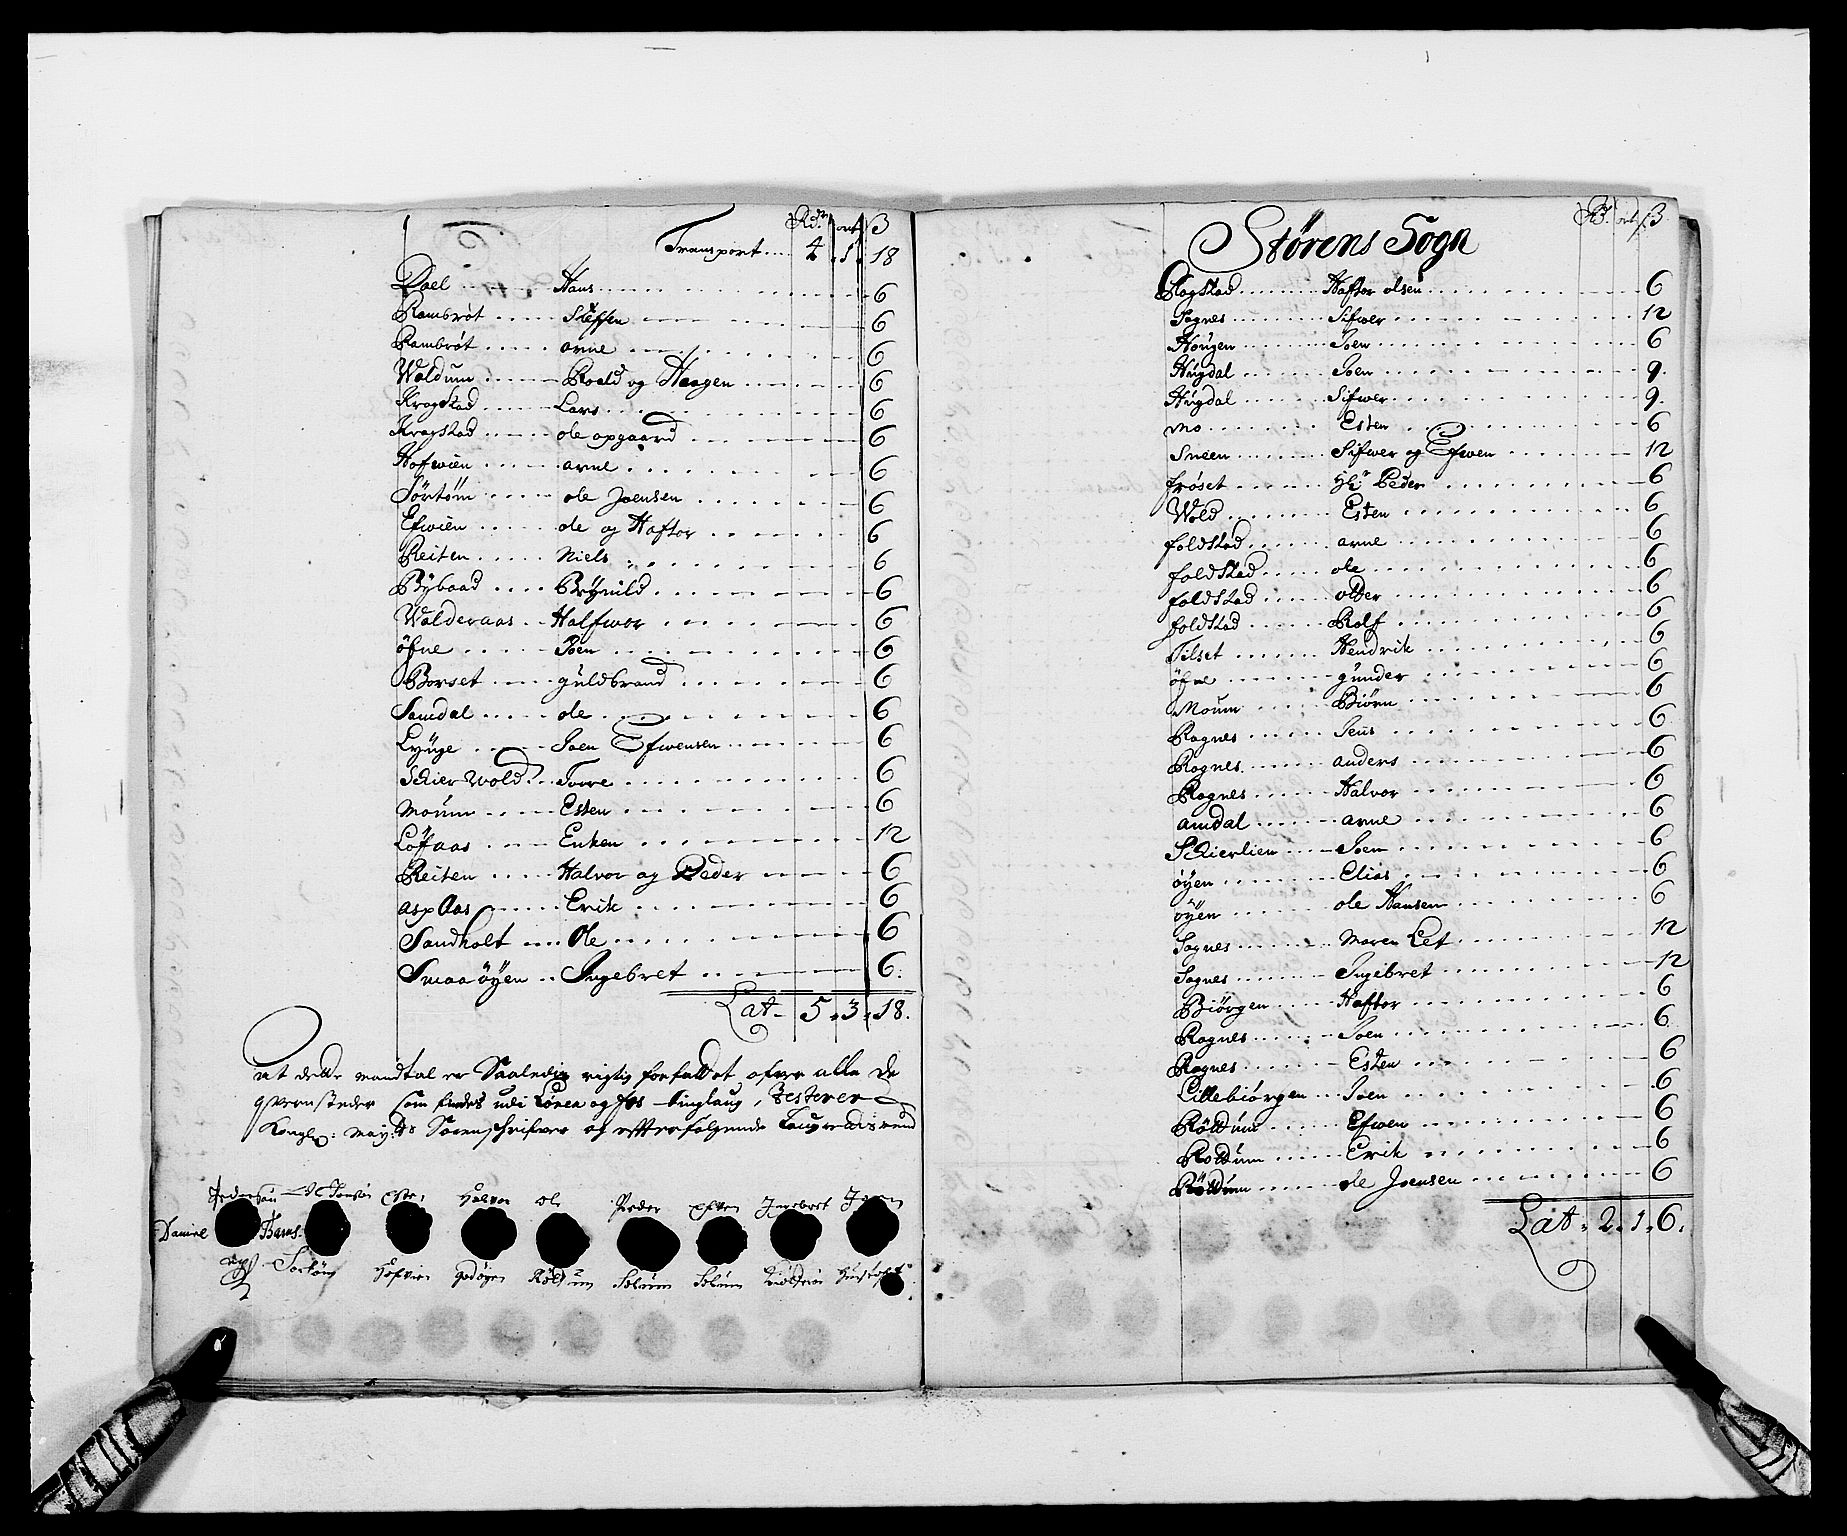 Rdr. ort. β
Transport .... 4 . 1 . 18
Dael ...... Hans ...... 6
Rambrøt ..... Steffen ...... 6
Rambrøt ..... arne ...... 6
Woldum ..... Roald og Haagen ...... 6
Kragstad ..... Lars ...... 6
Kragstad ..... ole opgaard ...... 6
Hofwien ..... arne ...... 6
Sørtøm ..... ole Joensen ...... 6
Efwien ..... ole og Haftor ...... 6
Reiten ..... Niels ...... 6
Bÿbaad ..... Brÿnild ...... 6
Walderaas .. Halfwor ...... 6
öfne ..... Joen ...... 6
Borset ..... guldbrand ...... 6
Samdal ..... ole ...... 6
Lÿnge ..... Joen Efwensen ...... 6
Schier Wold ... Torre ...... 6
Moum ..... Esten ...... 6
Löfaas ..... Enken ...... 12
Reiten ..... Halvor og Peder ...... 6
asp Aas ..... Erik ...... 6
Sandholt .... Ole ...... 6
Smaaöÿen .. Ingebret ...... 6.
Lat - 5 . 3 . 18.
at dette mandtal er Saaledis rigtig forfattet ofver alle de
qvernsteder som findes udi tinglaug, Testerer
Kongl: May:ts Sorenschrifver og efterfølgende Laugrettismend
Pedersøn Ole Joensøn Esten Halvor Ole Peder Efven Ingebret Joen
Daniel Hans.
Hofvien godøyen Röldum Solum Solum
Størens Sogn
R. ort. β
Rogstad ...... Haftor olsen ...... 6
Sognes ...... Sifwer ...... 12
Hougen ...... Joen ...... 6
Hugdal ...... Joen ...... 9.
Hugdal ...... Sifwer ...... 9.
Mo ...... Esten ...... 6
Sneen ...... Sifwer og Efwen ...... 12
frøset ...... Hr. Peder ...... 6
Wold ...... Esten ...... 6
foldstad ...... arne ...... 6
foldstad ...... ole ...... 6
foldstad ...... otter ...... 6
foldstad ...... Rolf ...... 6
Tilset ...... Hendrik ...... 6
öfne ...... gunder ...... 6
Moum ...... Biörn ...... 6
Rognes ...... Jens ...... 6
Rognes ...... anders ...... 6
Rognes ...... Halvor ...... 6
amdal ...... arne ...... 6
Schierlien .... Joen ...... 6
öÿen ...... Elias ...... 6
öÿen ...... ole Hansen ...... 6
Sognes ...... Maren Let ...... 12
Sognes ...... Ingebret ...... 12
Biörgen ...... Haftor ...... 6
Rognes ...... Joen ...... 6.
Rognes ...... Esten ...... 6
Lillebiörgen ... Joen ...... 6
Röldum ...... Efwen ...... 6
Roldum ...... Erik ...... 6
Röldum ...... ole Joensen ...... 6
Lat . 2 . 1 . 6.